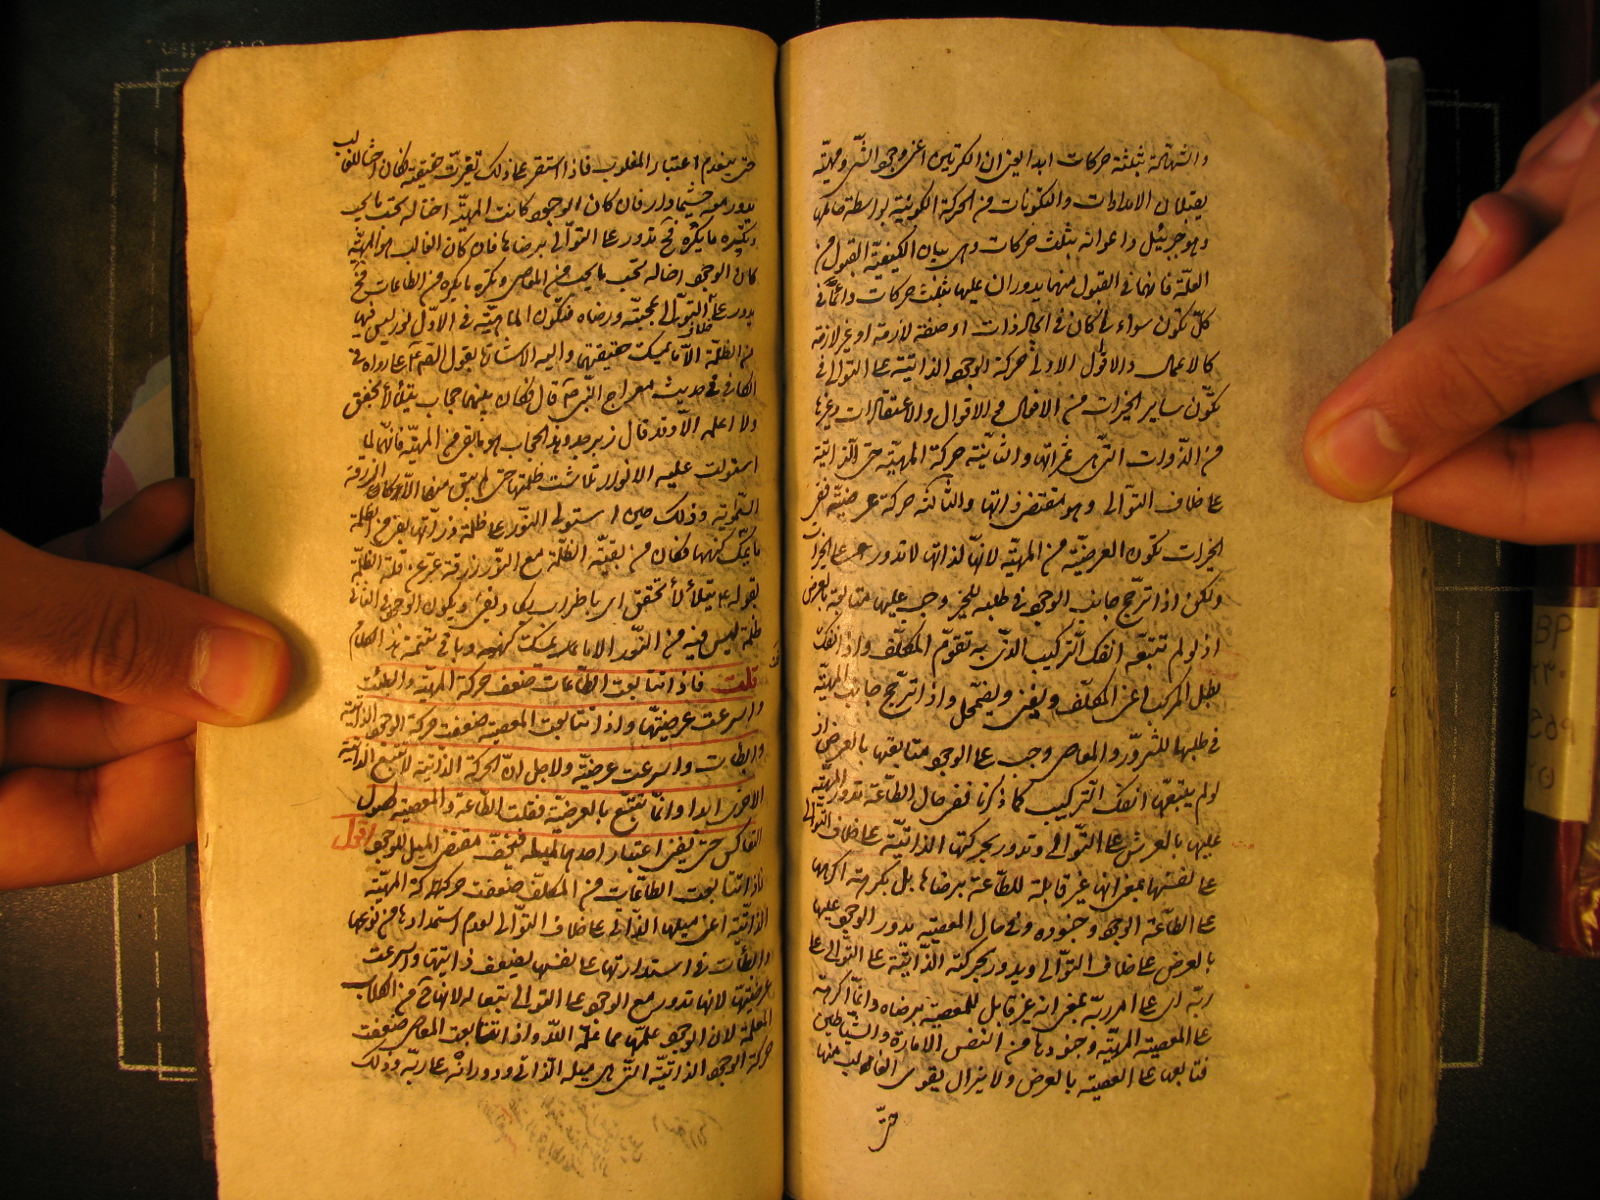 والشهادة بثلثة حركات ابدا يعني ان الكرتين اعني وجود الشيء ومهيته
يقبلان الامدادات والتكوينات من الحركة الكونية بواسطة حاملها
وهو جبرئيل واعوانه بثلث حركات وهي بيان الكيفية القبول من
العلة فانهما في القبول منها يدوران عليها بثلث حركات دائما في
كل تكون سواء كان في ايجاد ذات او صفة لازمة او غير لازمة
كالاعمال والاقوال الاولى حركة الوجود الذاتية على التوالي في
تكون ساير الخيرات من الافعال والاقوال والاعتقادات وغيرها
من الذوات التي هي ثمراتها والثانية حركة المهية الذاتية
على خلاف التوالي وهو مقتضى ذاتها والثالثة حركة عرضية ففي
الخيرات تكون العرضية من المهية لانها لذاتها لا تدور على الخيرات
ولكن اذا ترجح جانب الوجود في طلبه للخير وجب عليها متابعة بالعرض
اذ لو لم تتبعه انفك التركيب الذي به تقوم المكلف واذا انفك
بطل المركب اعني المكلف ويفنى ويضمحل واذا ترجح جانب المهية
في طلبها للشرور والمعاصي وجب على الوجود متابعتها بالعرض اذ
لو لم يتبعها انفك التركيب كما ذكرنا ففي حال الطاعة تدور المهية
عليها بالعرض على التوالي وتدور بحركتها الذاتية على خلاف التوالي
على نفسها بمعنى انها غير قابلة للطاعة برضاها بل بكره اكرهها
على الطاعة الوجود وجنوده وفي حال المعصية يدور الوجود عليها
بالعرض على خلاف التوالي ويدور بحركته الذاتية على التوالي على
ربه اي على امر ربه بمعنى انه غير قابل للمعصية برضاه وانما اكرهه
على المعصية المهية وجنودها من النفس الامارة والشياطين
فتابعها على المعصية بالعرض ولا يزال يقوى الغالب منهما
حتى
حتى ينعدم اعتبار المغلوب فاذا استقر على ذلك تغيرت حقيقته فكان اختا للغالب
يدور معه حيثما دار فان كان الوجود كانت المهية اختا له تحب ما يحب
وتكره ما يكره فح تدور على التوالي برضاها فان كان الغالب هو المهية
كان الوجود اخا لها يحب ما تحب من المعاصي ويكره ما تكره من الطاعات فح
يدور على التوالي بمحبته ورضاه فتكون الماهية في الاول نور ليس فيها
خلاف
من الظلمة الا ما يمسك حقيقتها واليه الاشارة بقول الصادق على ما رواه في
الكافي في حديث معراج النبي ص قال فكان بينهما حجاب يتلألأ بخفق
ولا اعلمه الا وقد قال زبرجد وهذا الحجاب هو ما بقي من المهية فانها لما
استولت عليه الانوار تلاشت ظلمتها حتى لم يبق منها الا كالزرقة
السموية وذلك حين استولى النور على ظلمة ذرأتها بقي من الظلمة
ما يمسك كنهها فكان من بقية الظلمة مع النور زرقة عبر عن قلة الظلمة
بقوله ع يتلألأ بخفق اي باضطراب ويكون الوجود في الثاني
ظلمة ليس فيه من النور الا ما يمسك كنهه وباقي تتمة هذا الكلام
قلت فاذا تتابعت الطاعات ضعفت حركة المهية وابطئت
واسرعت عرضيتها واذا تتابعت المعصية ضعفت حركة الوجود الذاتية
وابطأت واسرعت عرضيته ولاجل ان الحركة الذاتية لا تتبع الذاتية
الاخرى ابدا وانما تتبع بالعرضية فقلت الطاعة والمعصية طول
التعاكس حتى يفنى اعتبار احدهما لميله فيخف مقتضى الميل للوجود اقول
فاذا تتابعت الطاعات من المكلف ضعفت حركة المهية
الذاتية اعني ميلها الذاتي على خلاف التوالي لعدم استمدادها من نوعها
وابطأت في استدارتها على نفسها لضعف ذاتيتها واسرعت
عرضيتها لانها تدور مع الوجود على التوالي تبعا له لانها في
المعلمة لان الوجود علمها مما علمه الله واذا تتابعت المعاصي ضعفت
حركة الوجود الذاتية التي هي ميله الذاتي ودورانه على ربه وذلك